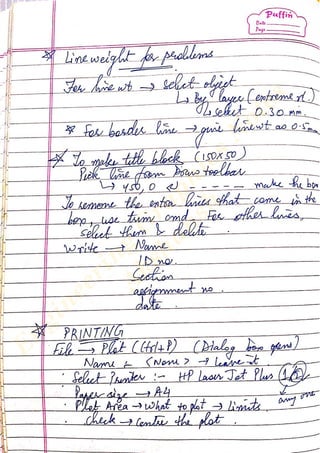 Puffin
Date
Page
* Line weight for problems
For line wt → select object
↳ By layer (extreme rt.)
↳ select 0.30 mm.
* For border line → give linewt as 0.5mm
* To make title block (150x50)
Pick line from Draw toolbar
↳ 450,0 ↵ ----- make the box
To remove the extra lines that come in the
box, use trim cmd. For other lines,
select them & delete.
Write → Name
ID no.
Section
assignment no.
date.
* PRINTING
File → Plot (Ctrl+P) (Dialog box opens)
Name <None> → leave it.
· Select Printer :- HP Laser Jet Plus
· Paper size → A4 any one
· Plot Area → What to plot → Limits.
· check → Centre the plot.